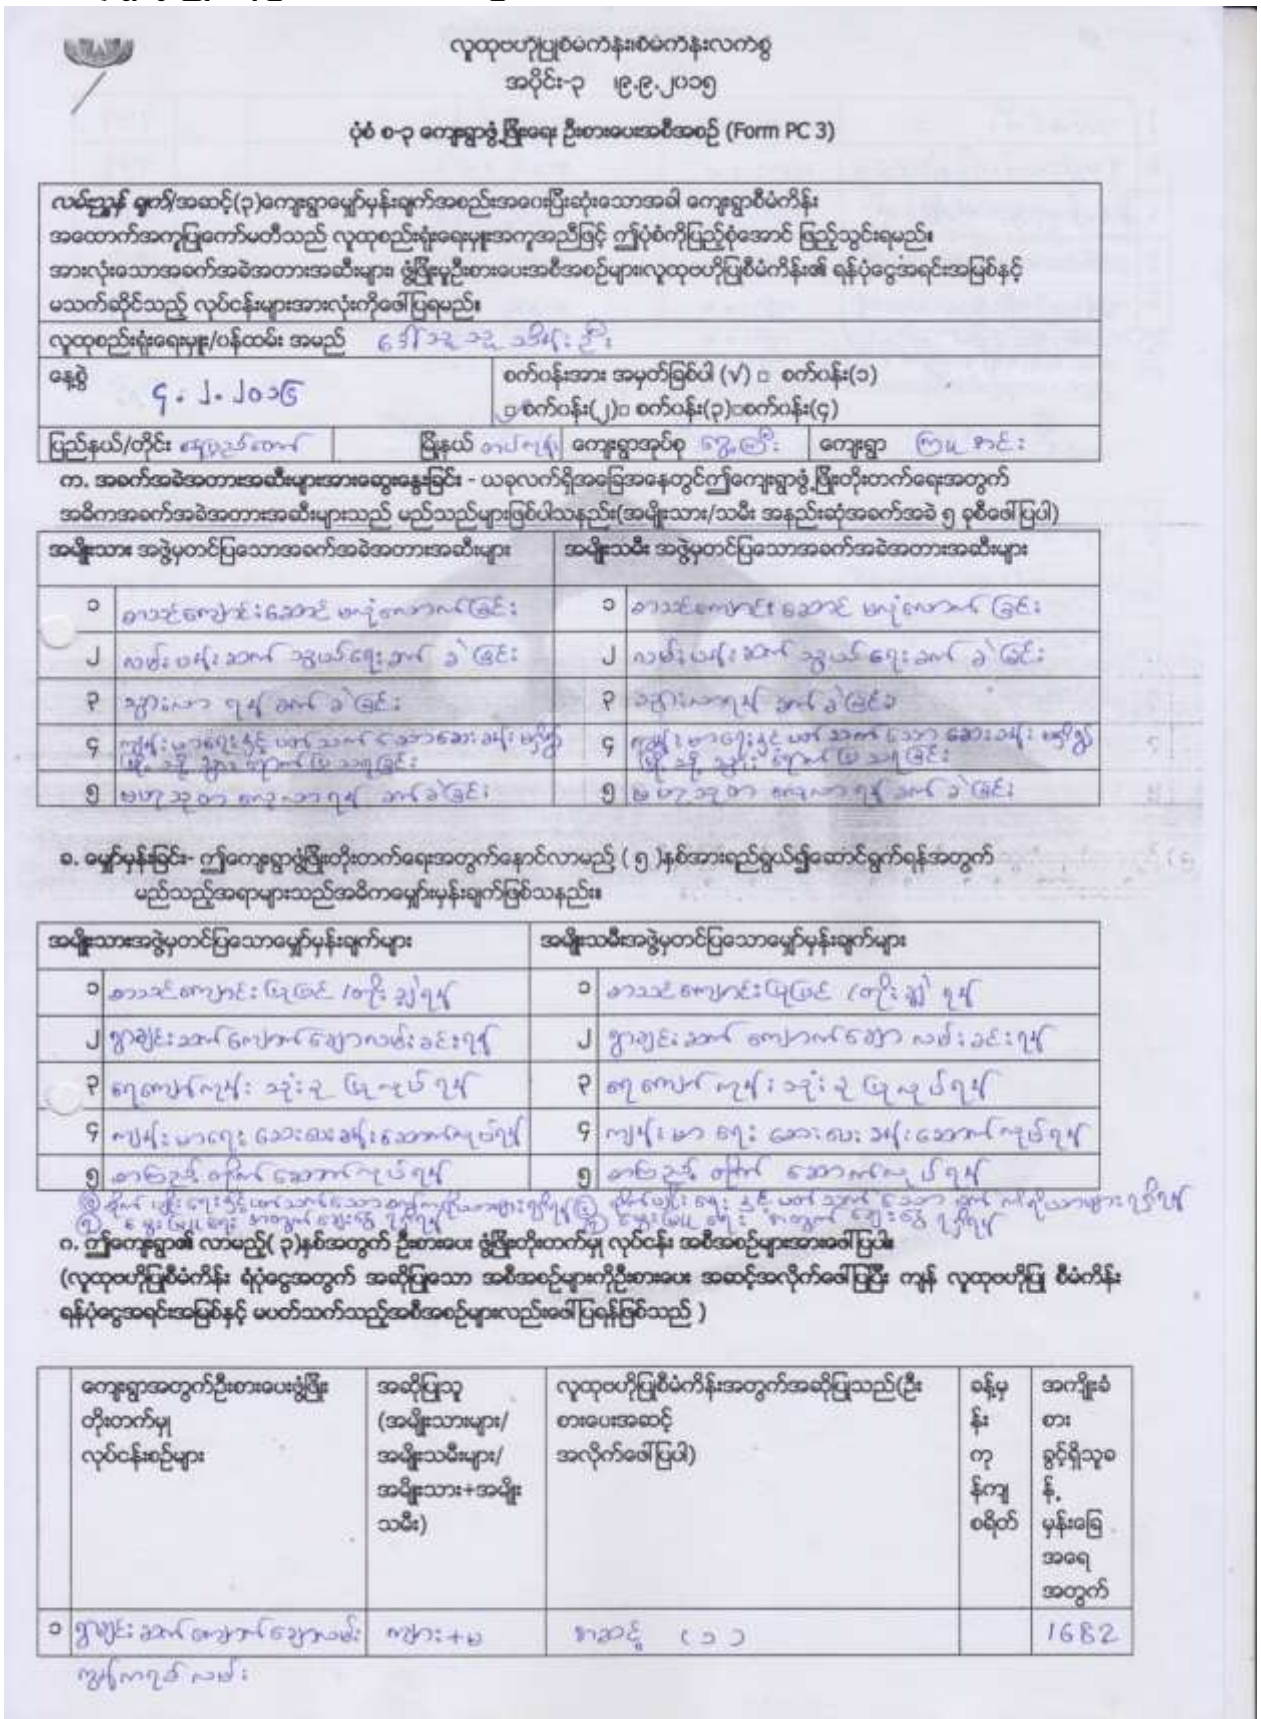 လူထုဗဟိုပြုစီမံကိန်း၊စီမံကိန်းလက်စွဲ
အပိုင်း-၃ ၊၉.၉.၂၀၁၅
ပုံစံ စ-၃ ကျေးရွာဖွံ့ဖြိုးရေး ဦးစားပေးအစီအစဉ် (Form PC 3)
လမ်းညွှန် ချက်/အဆင့်(၃)ကျေးရွာမျှော်မှန်းချက်အစည်းအဝေးပြီးဆုံးသောအခါ ကျေးရွာစီမံကိန်း
အထောက်အကူပြုကော်မတီသည် လူထုစည်းရုံးရေးမှူးအကူအညီဖြင့် ဤပုံစံကိုပြည့်စုံအောင် ဖြည့်သွင်းရမည်။
အားလုံးသောအခက်အခဲအတားအဆီးများ၊ ဖွံ့ဖြိုးမှုဦးစားပေးအစီအစဉ်များ၊လူထုဗဟိုပြုစီမံကိန်း၏ ရန်ပုံငွေအရင်းအမြစ်နှင့်
မသက်ဆိုင်သည့် လုပ်ငန်းများအားလုံးကိုဖေါ်ပြရမည်။
လူထုစည်းရုံးရေးမှူး/ဝန်ထမ်း အမည် ဒေါ်သူသူသိန်းဦး
နေ့စွဲ ၄.၂.၂၀၁၆ စက်ဝန်းအား အမှတ်ခြစ်ပါ (√) □ စက်ဝန်း(၁)
□ စက်ဝန်း(၂)□ စက်ဝန်း(၃)□စက်ဝန်း(၄)
ပြည်နယ်/တိုင်း နေပြည်တော် မြို့နယ် တပ်ကုန်း ကျေးရွာအုပ်စု ရွှေမြိုး ကျေးရွာ
က. အခက်အခဲအတားအဆီးများအားဆွေးနွေးခြင်း - ယခုလက်ရှိအခြေအနေတွင်ဤကျေးရွာဖွံ့ဖြိုးတိုးတက်ရေးအတွက်
အဓိကအခက်အခဲအတားအဆီးများသည် မည်သည်များဖြစ်ပါသနည်း(အမျိုးသား/သမီး အနည်းဆုံအခက်အခဲ ၅ ခုစီဖေါ်ပြပါ)
အမျိုးသား အဖွဲ့မှတင်ပြသောအခက်အခဲအတားအဆီးများ အမျိုးသမီး အဖွဲ့မှတင်ပြသောအခက်အခဲအတားအဆီးများ
၁ စာသင်ကျောင်းဆောင် မလုံလောက်ခြင်း ၁ စာသင်ကျောင်းဆောင် မလုံလောက်ခြင်း
၂ လမ်းပန်းဆက်သွယ်ရေးခက်ခဲခြင်း ၂ လမ်းပန်းဆက်သွယ်ရေးခက်ခဲခြင်း
၃ သွားလာရန်ခက်ခဲခြင်း ၃ သွားလာရန်ခက်ခဲခြင်း
၄ ကျန်းမာရေးနှင့်ပတ်သက်သောဆေးခန်းမရှိ၍ ၄ ကျန်းမာရေးနှင့်ပတ်သက်သောဆေးခန်းမရှိ၍
မြို့သို့သွားရောက်ပြသရခြင်း မြို့သို့သွားရောက်ပြသရခြင်း
၅ ဗဟုသုတလေ့လာရန်ခက်ခဲခြင်း ၅ ဗဟုသုတလေ့လာရန်ခက်ခဲခြင်း
ခ. မျှော်မှန်းခြင်း- ဤကျေးရွာဖွံ့ဖြိုးတိုးတက်ရေးအတွက်နောင်လာမည် ( ၅ )နှစ်အားရည်ရွယ်၍ဆောင်ရွက်ရန်အတွက်
မည်သည့်အရာများသည်အဓိကမျှော်မှန်းချက်ဖြစ်သနည်း။
အမျိုးသားအဖွဲ့မှတင်ပြသောမျှော်မှန်းချက်များ အမျိုးသမီးအဖွဲ့မှတင်ပြသောမျှော်မှန်းချက်များ
၁ စာသင်ကျောင်းပြုပြင်/တိုးချဲ့ရန် ၁ စာသင်ကျောင်းပြုပြင်/တိုးချဲ့ရန်
၂ ရွာချင်းဆက်ကျောက်ချောလမ်းခင်းရန် ၂ ရွာချင်းဆက်ကျောက်ချောလမ်းခင်းရန်
၃ ရေကျော်ကုန်းသုံးခုပြုလုပ်ရန် ၃ ရေကျော်ကုန်းသုံးခုပြုလုပ်ရန်
၄ ကျန်းမာရေးဆေးပေးခန်းဆောက်လုပ်ရန် ၄ ကျန်းမာရေးဆေးပေးခန်းဆောက်လုပ်ရန်
၅ စာကြည့်တိုက်ဆောက်လုပ်ရန် ၅ စာကြည့်တိုက်ဆောက်လုပ်ရန်
၆ စိုက်ပျိုးရေးနှင့်ပတ်သက်သောစက်ကိရိယာများရရှိရန် ၆ စိုက်ပျိုးရေးနှင့်ပတ်သက်သောစက်ကိရိယာများရရှိရန်
၇ မွေးမြူရေးအတွက်ချေးငွေရရှိရန် ၇ မွေးမြူရေးအတွက်ချေးငွေရရှိရန်
ဂ. ဤကျေးရွာ၏ လာမည့်( ၃)နှစ်အတွက် ဦးစားပေး ဖွံ့ဖြိုးတိုးတက်မှု လုပ်ငန်း အစီအစဉ်များအားဖေါ်ပြပါ။
(လူထုဗဟိုပြုစီမံကိန်း ရံပုံငွေအတွက် အဆိုပြုသော အစီအစဉ်များကိုဦးစားပေး အဆင့်အလိုက်ဖေါ်ပြပြီး ကျန် လူထုဗဟိုပြု စီမံကိန်း
ရန်ပုံငွေအရင်းအမြစ်နှင့် မပတ်သက်သည့်အစီအစဉ်များလည်းဖေါ်ပြရန်ဖြစ်သည် )
ကျေးရွာအတွက်ဦးစားပေးဖွံ့ဖြိုး အဆိုပြုသူ လူထုဗဟိုပြုစီမံကိန်းအတွက်အဆိုပြုသည်(ဦး ခန့်မှ အကျိုးခံ
တိုးတက်မှု (အမျိုးသားများ/ စားပေးအဆင့် န်း စား
လုပ်ငန်းစဉ်များ အမျိုးသမီးများ/ အလိုက်ဖေါ်ပြပါ) ကု ခွင့်ရှိသူခ
အမျိုးသား+အမျိုး န်ကျ န့်
သမီး) စရိတ် မှန်းခြေ
အရေ
အတွက်
၁ ရွာချင်းဆက်ကျောက်ချောလမ်း ကျား+မ အဆင့် (၁) 1682
ကွန်ကရစ်လမ်း